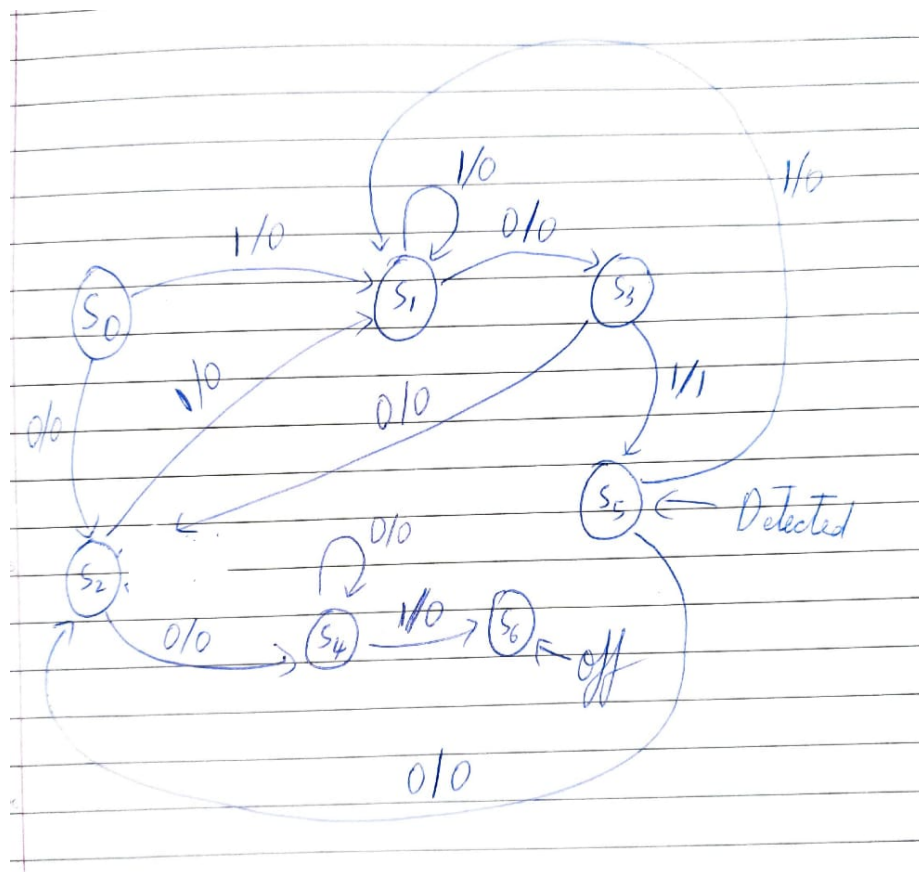 1/0
1/0
1/0
0/0
S0
S1
S3
0/0
1/0
0/0
1/1
S5
Detected
S2
0/0
0/0
S4
1/0
S6
off
0/0